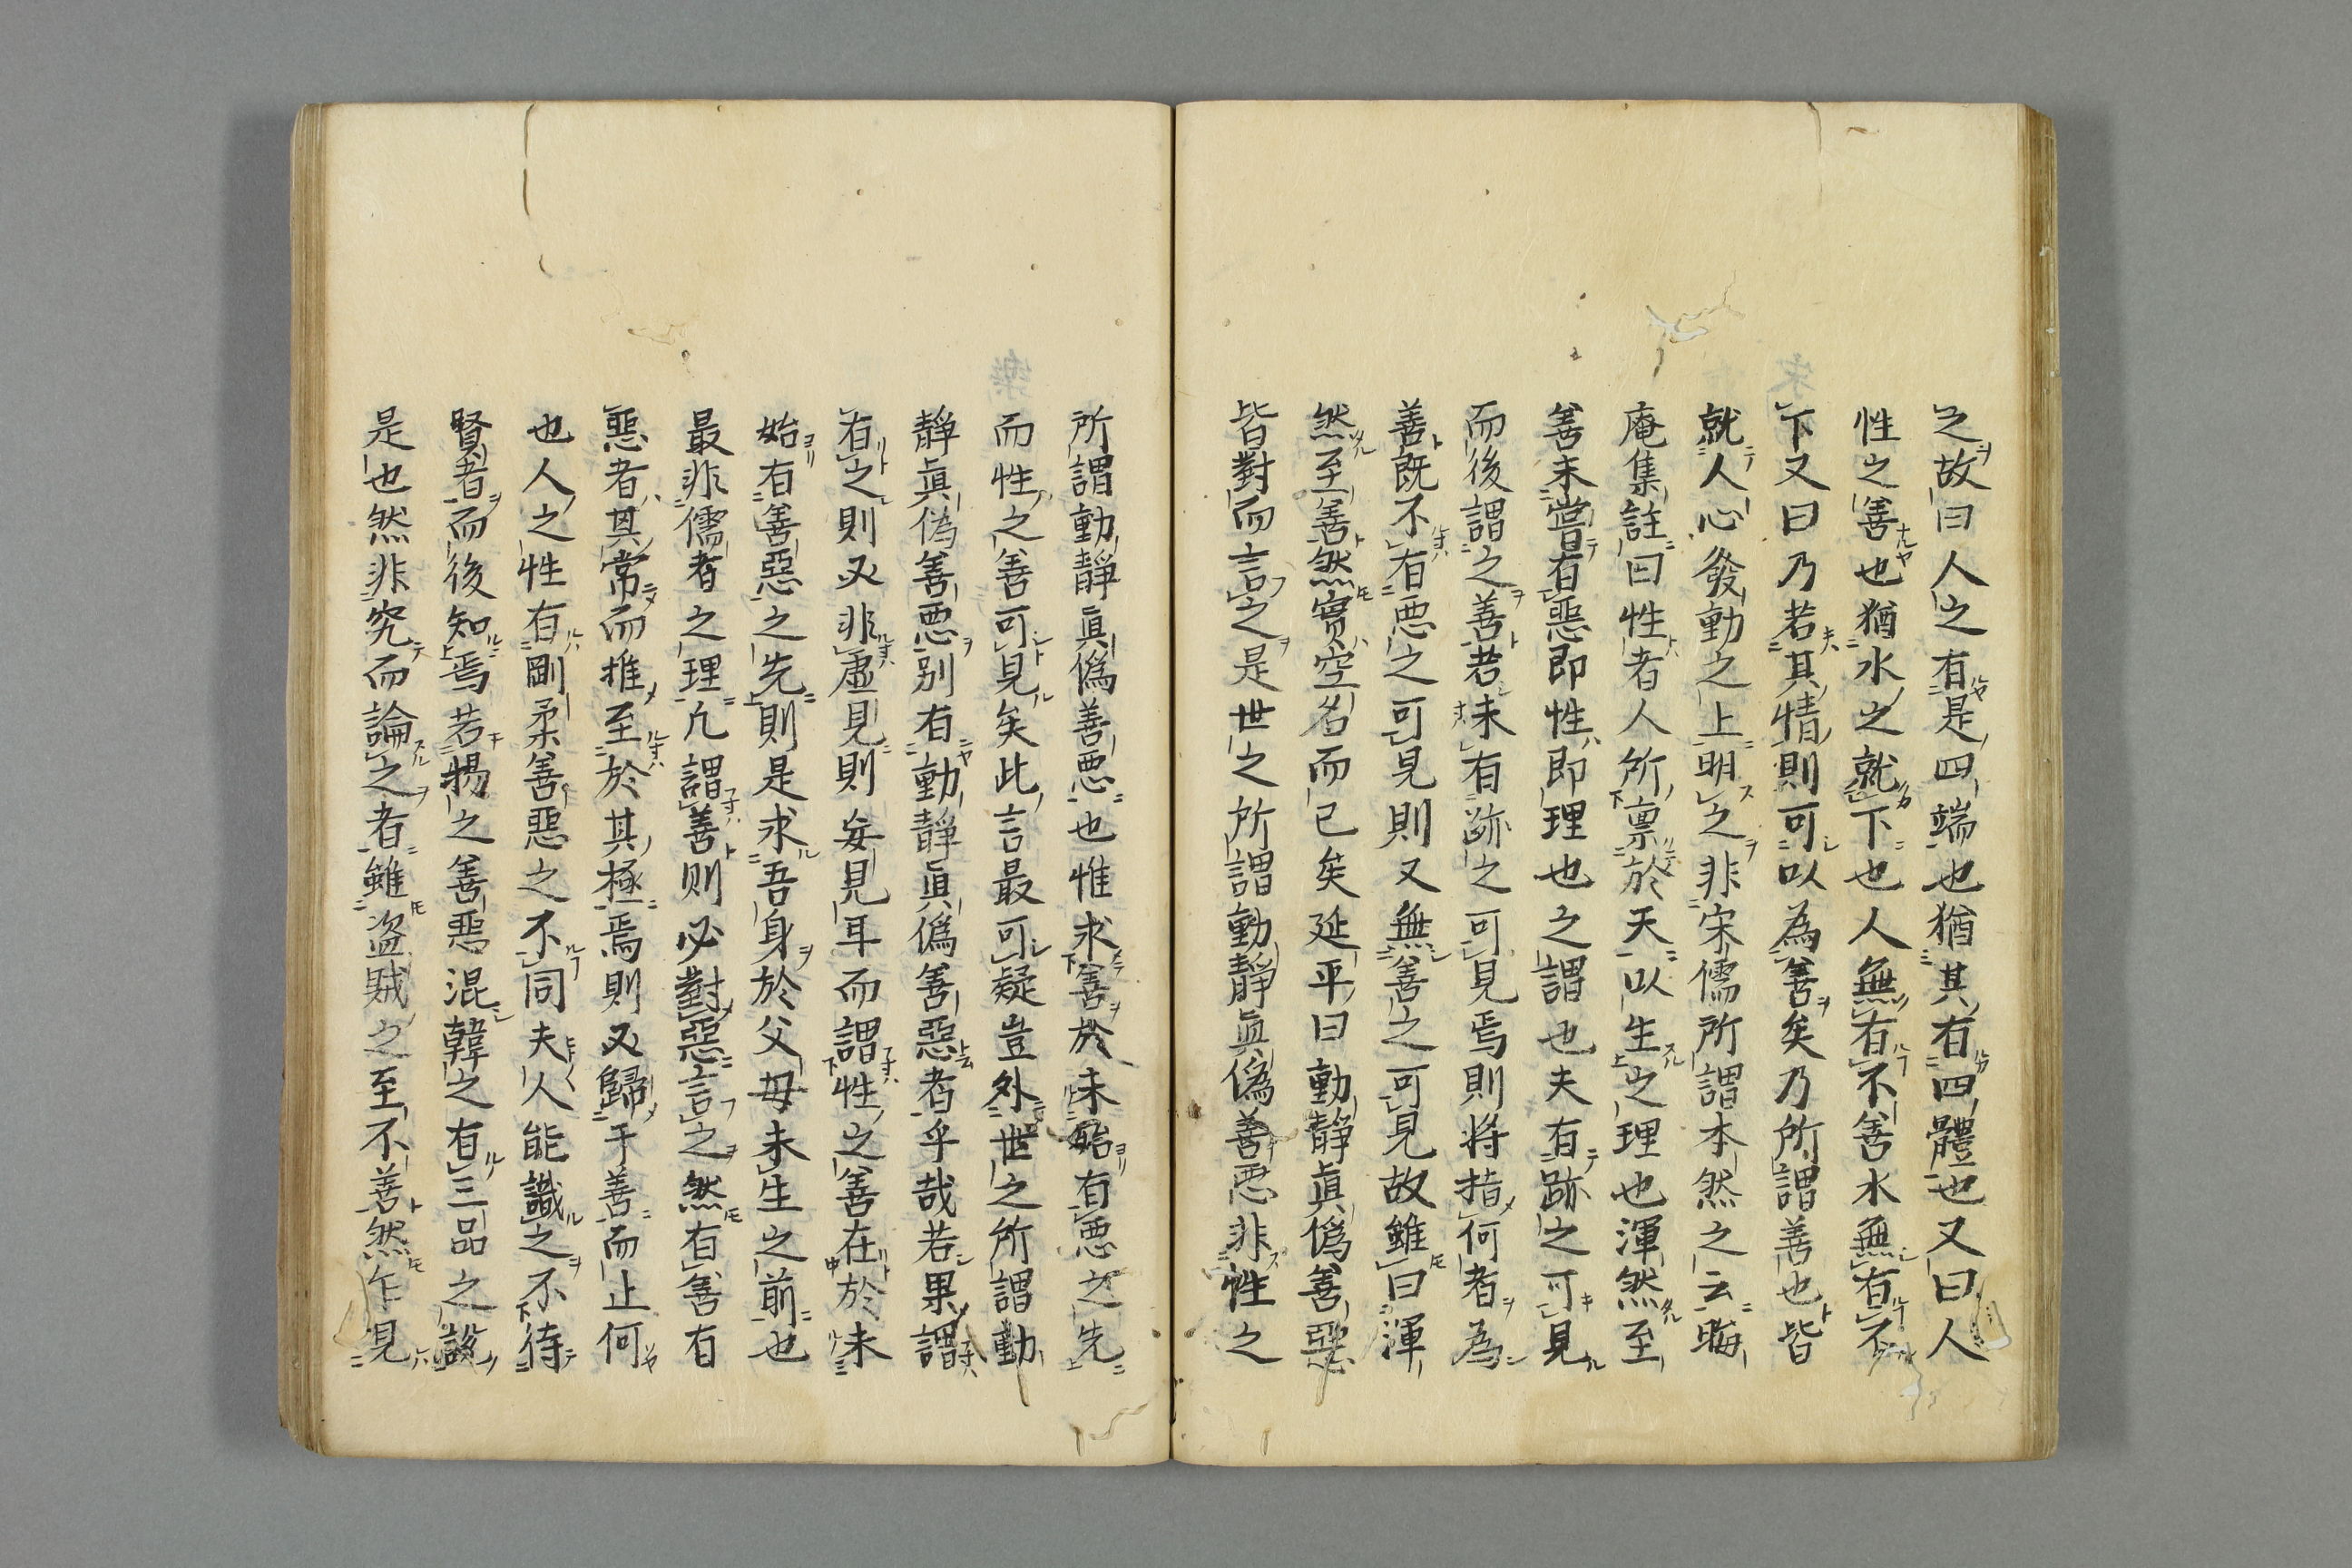 之故曰人之有是四端也猶其有四體也又曰人
性之善也猶水之就下也人無有不善水無有不
下又曰乃若其情則可以為善矣乃所謂善也皆
就人心發動之上明之非宋儒所謂本然之云晦
庵集註曰性者人所禀於天以生之理也渾然至
善未嘗有惡即性即理也之謂也夫有跡之可見
而後謂之善若未有跡之可見焉則將指何者為
善既不有悪之可見則又無善之可見故雖曰渾
然至善然實空名而已矣延平曰動靜眞僞善惡
皆對而言之是世之所謂動靜眞僞善悪非性之
所謂動靜眞僞善悪也惟求善於未始有悪之先
而性之善可見矣此言最可疑豈外世之所謂動
靜眞偽善悪別有動靜眞僞善惡者乎哉若果謂
有之則又非虛見則妄見耳而謂性之善在於未
始有善惡之先則是求吾身於父母未生之前也
最非儒者之理凢謂善則必對惡言之然有善有
惡者其常而推至於其極焉則又歸于善而止何
也人之性有剛柔善惡之不同夫人能識之不待
賢者而後知焉若楊之善惡混韓之有三品之說
是也然非究而論之者雖盗賊之至不善然乍見